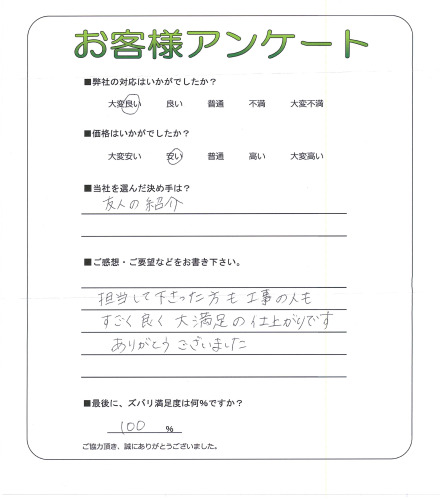 お客様アンケート
■弊社の対応はいかがでしたか？
大変良い 良い 普通 不満 大変不満
■価格はいかがでしたか？
大変安い 安い 普通 高い 大変高い
■当社を選んだ決め手は？
友人の紹介
■ご感想・ご要望などをお書き下さい。
担当して下さった方も工事の人も
すごく良く大満足の仕上がりです
ありがとうございました
■最後に、ズバリ満足度は何%ですか？
100 %
ご協力頂き、誠にありがとうございました。